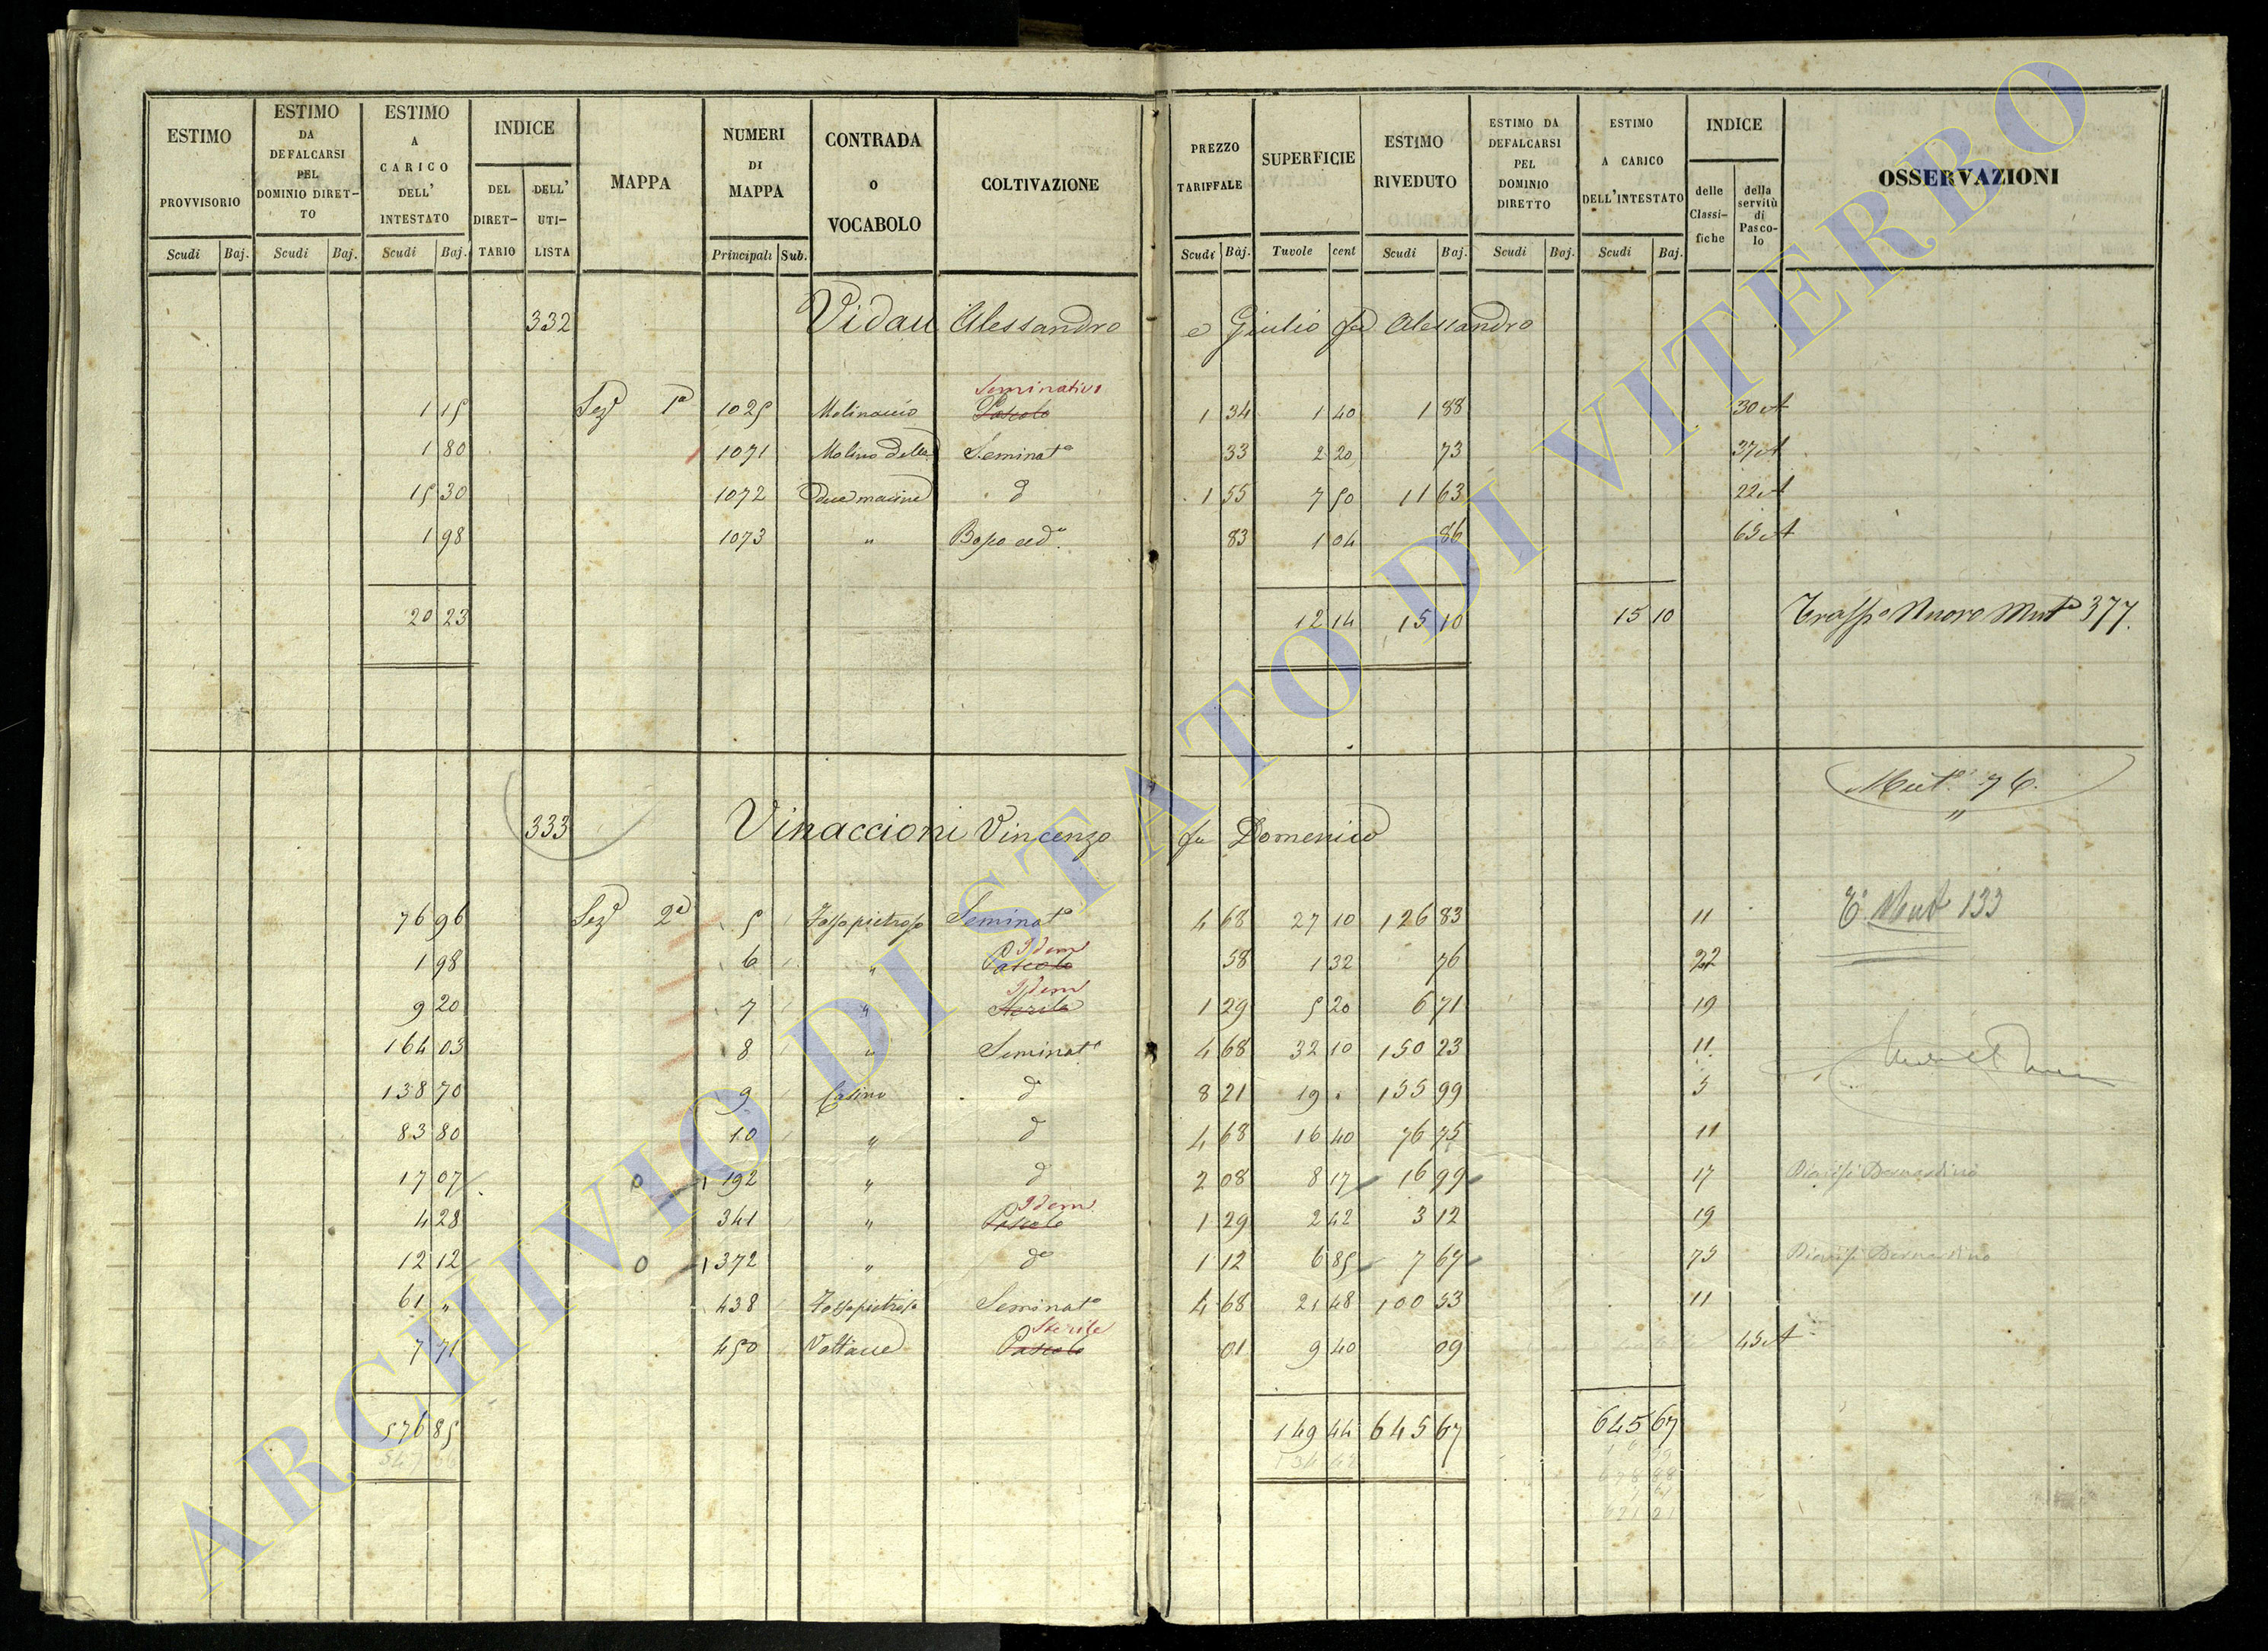 ESTIMO PROVVISORIO Scudi Baj.
ESTIMO DA DEFALCARSI PEL DOMINIO DIRETTO Scudi Baj.
ESTIMO A CARICO DELL' INTESTATO Scudi Baj.
INDICE DEL DIRETTARIO DELL' UTILISTA
MAPPA
NUMERI DI MAPPA Principali Sub.
CONTRADA O VOCABOLO
COLTIVAZIONE
PREZZO TARIFFALE Scudi Baj.
SUPERFICIE Tavole cent
ESTIMO RIVEDUTO Scudi Baj.
ESTIMO DA DEFALCARSI PEL DOMINIO DIRETTO Scudi Baj.
ESTIMO A CARICO DELL'INTESTATO Scudi Baj.
INDICE delle Classifiche della servitù di Pascolo
OSSERVAZIONI
332 Vidau Alessandro e Giulio fu Alessandro
Seminativo
1 15 Sez.e 1a 1025 Molinaccio Pascolo 1 34 1 40 1 88 30 A
1 80 1071 Molino delle Seminato 33 2 20 73 37 A
15 30 1072 due macine do 1 55 7 50 11 63 22 A
1 98 1073 " Bosco ced.o 83 1 04 86 65 A
20 23 12 14 15 10 15 10 Trasp.o Nuovo Mut.a 377.
Mut.e 76.
"
333 Vinaccioni Vincenzo fu Domenico
76 96 Sez.e 2a 5 Fossopietroso Seminato 4 68 27 10 126 83 11 T.o Mut 133
Idem
1 98 6 " Pascolo 58 1 32 76 22
Idem
9 20 7 " Sterile 1 29 5 20 6 71 19
164 03 8 " Seminato 4 68 32 10 150 23 11
138 70 9 Casino do 8 21 19 . 155 99 5
83 80 10 " do 4 68 16 40 76 75 11
17 07 0 192 " do 2 08 8 17 16 99 17 Bernardino
Idem
4 28 341 " Pascolo 1 29 2 42 3 12 19
12 12 0 1372 " do 1 12 6 85 7 67 73 Bernardino
61 " 438 Fossopietroso Seminato 4 68 21 48 100 53 11
Sterile
7 71 450 Vallacce Pascolo 01 9 40 09 45 A
576 85 149 44 645 67 645 67
134 42
621 21
ARCHIVIO DI STATO DI VITERBO